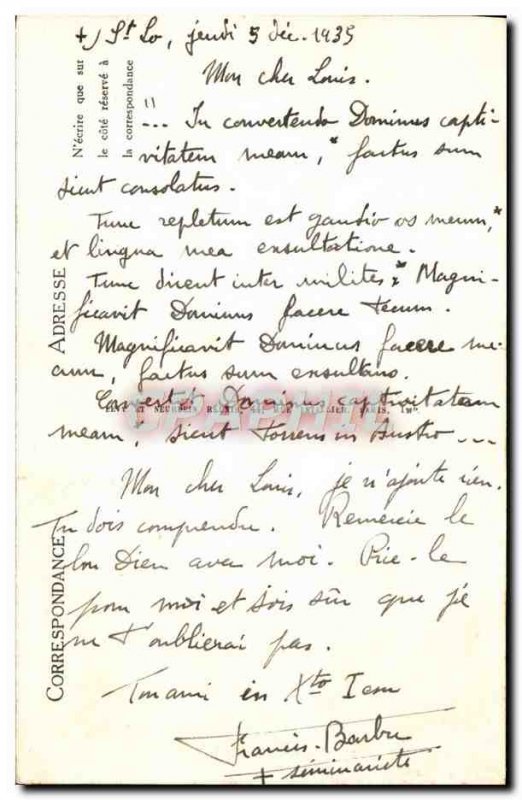 +) St Lo, jeudi 5 déc. 1935
Mon cher Louis.
"... In convertendo Dominus capti-
vitatem meam,* factus sum
sicut consolatus.
Tunc repletum est gaudio os meum,*
et lingua mea exsultatione.
Tunc dicent inter milites * Magni-
ficavit Dominus facere tecum.
Magnificavit Dominus facere me-
cum, factus sum exsultans.
Converte Dominus captivitatem
meam, sicut torrens in Austro ...
Mon cher Louis, je n'ajoute rien.
Tu dois comprendre. Remercie le
bon Dieu avec moi. Prie-le
pour moi et sois sûr que je
ne t'oublierai pas.
Ton ami en Xto Iesu
Francis-Barbu
+ séminariste
N'écrire que sur
le côté réservé à
la correspondance
ADRESSE
CORRESPONDANCE